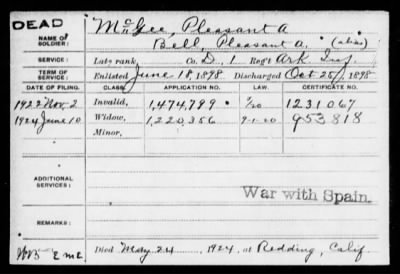 DEAD
NAME OF SOLDIER: McGee, Pleasant A
Bell, Pleasant A. (alias)
SERVICE: Late rank, Co. D, 1 Reg't Ark Inf
TERM OF SERVICE: Enlisted June 18, 1898 Discharged Oct 25, 1898
DATE OF FILING. CLASS. APPLICATION NO. LAW. CERTIFICATE NO.
1922 Nov. 2 Invalid, 1,474,799 1231067
1924 June 10 Widow, 1,220,356 9-1-20 953818
Minor,
ADDITIONAL SERVICES:
War with Spain.
REMARKS:
Died May 24, 1924, at Redding, Calif